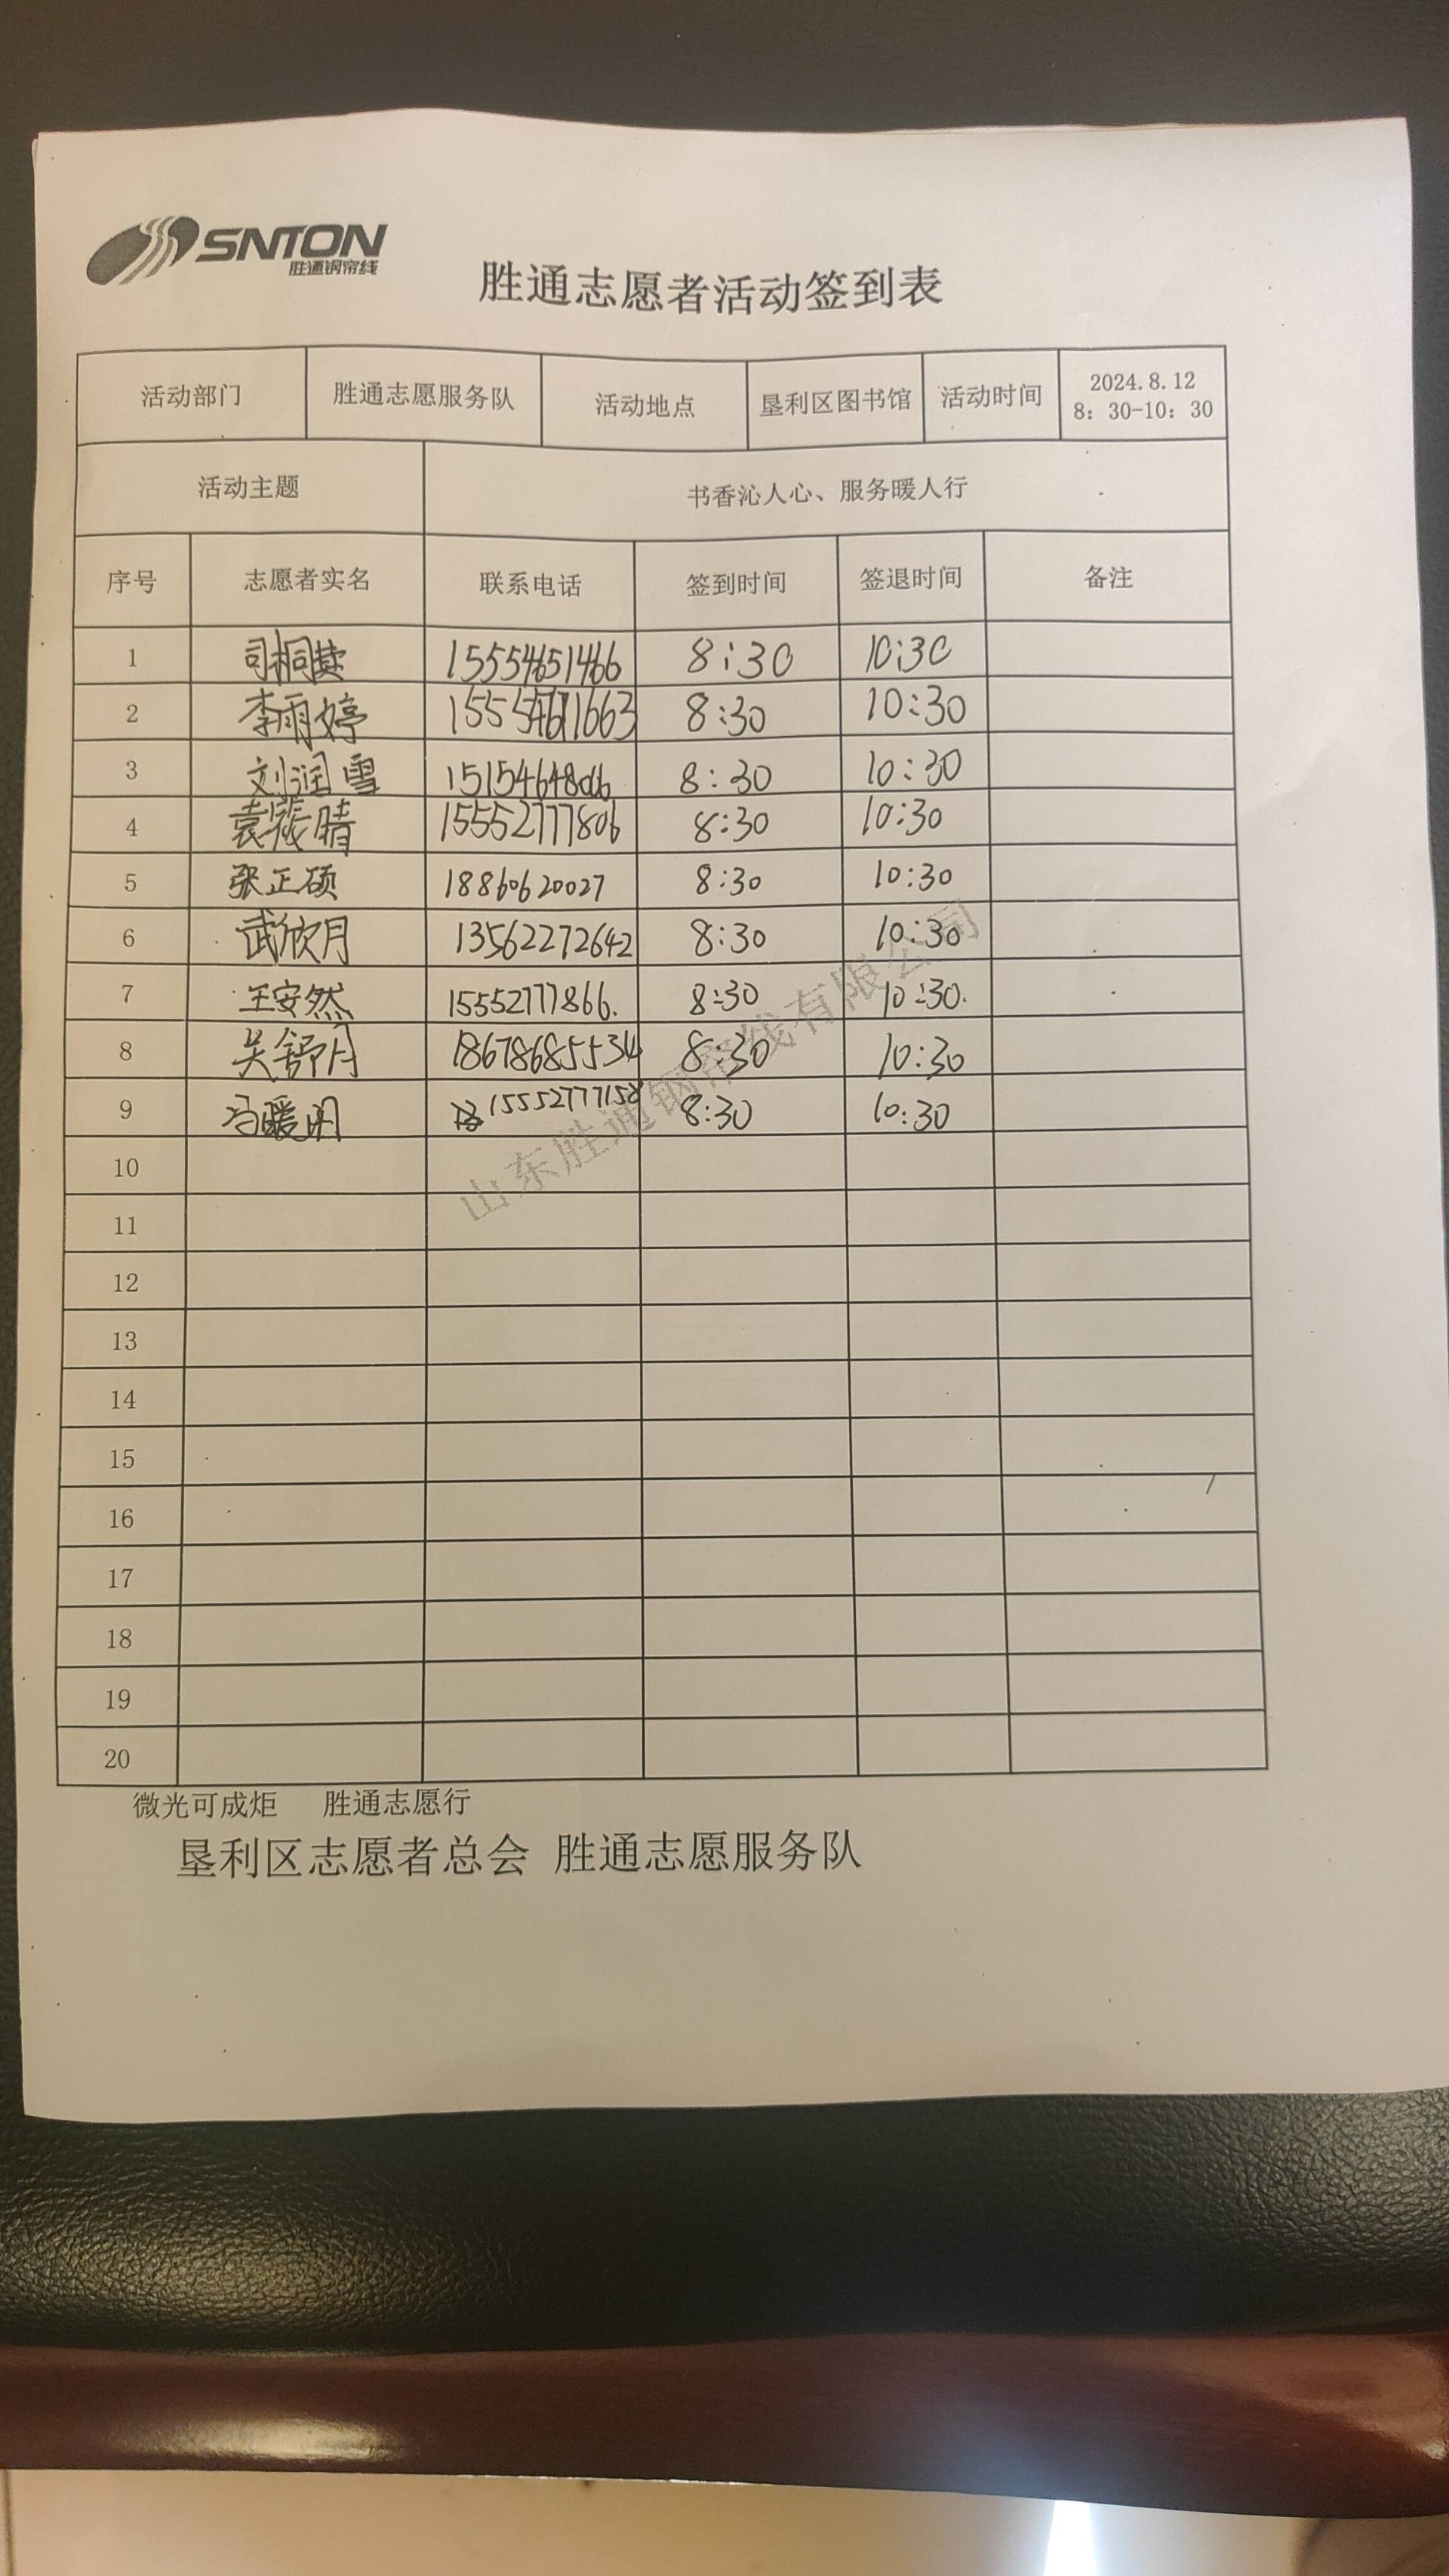 SNTON
胜通钢帘线
胜通志愿者活动签到表
活动部门 胜通志愿服务队 活动地点 垦利区图书馆 活动时间 2024.8.12
8：30-10：30
活动主题 书香沁人心、服务暖人行
序号 志愿者实名 联系电话 签到时间 签退时间 备注
1 15554651466 8:30 10:30
2 李雨婷 8:30 10:30
3 刘润雪 8:30 10:30
4 15552777806 8:30 10:30
5 张正硕 18860620027 8:30 10:30
6 武欣月 13562272642 8:30 10:30
7 王安然 15552777866. 8:30 10:30.
8 吴舒月 18678685534 8:30 10:30
9 15552777158 8:30 10:30
10
11
12
13
14
15
16
17
18
19
20
微光可成炬 胜通志愿行
垦利区志愿者总会 胜通志愿服务队
山东胜通钢帘线有限公司